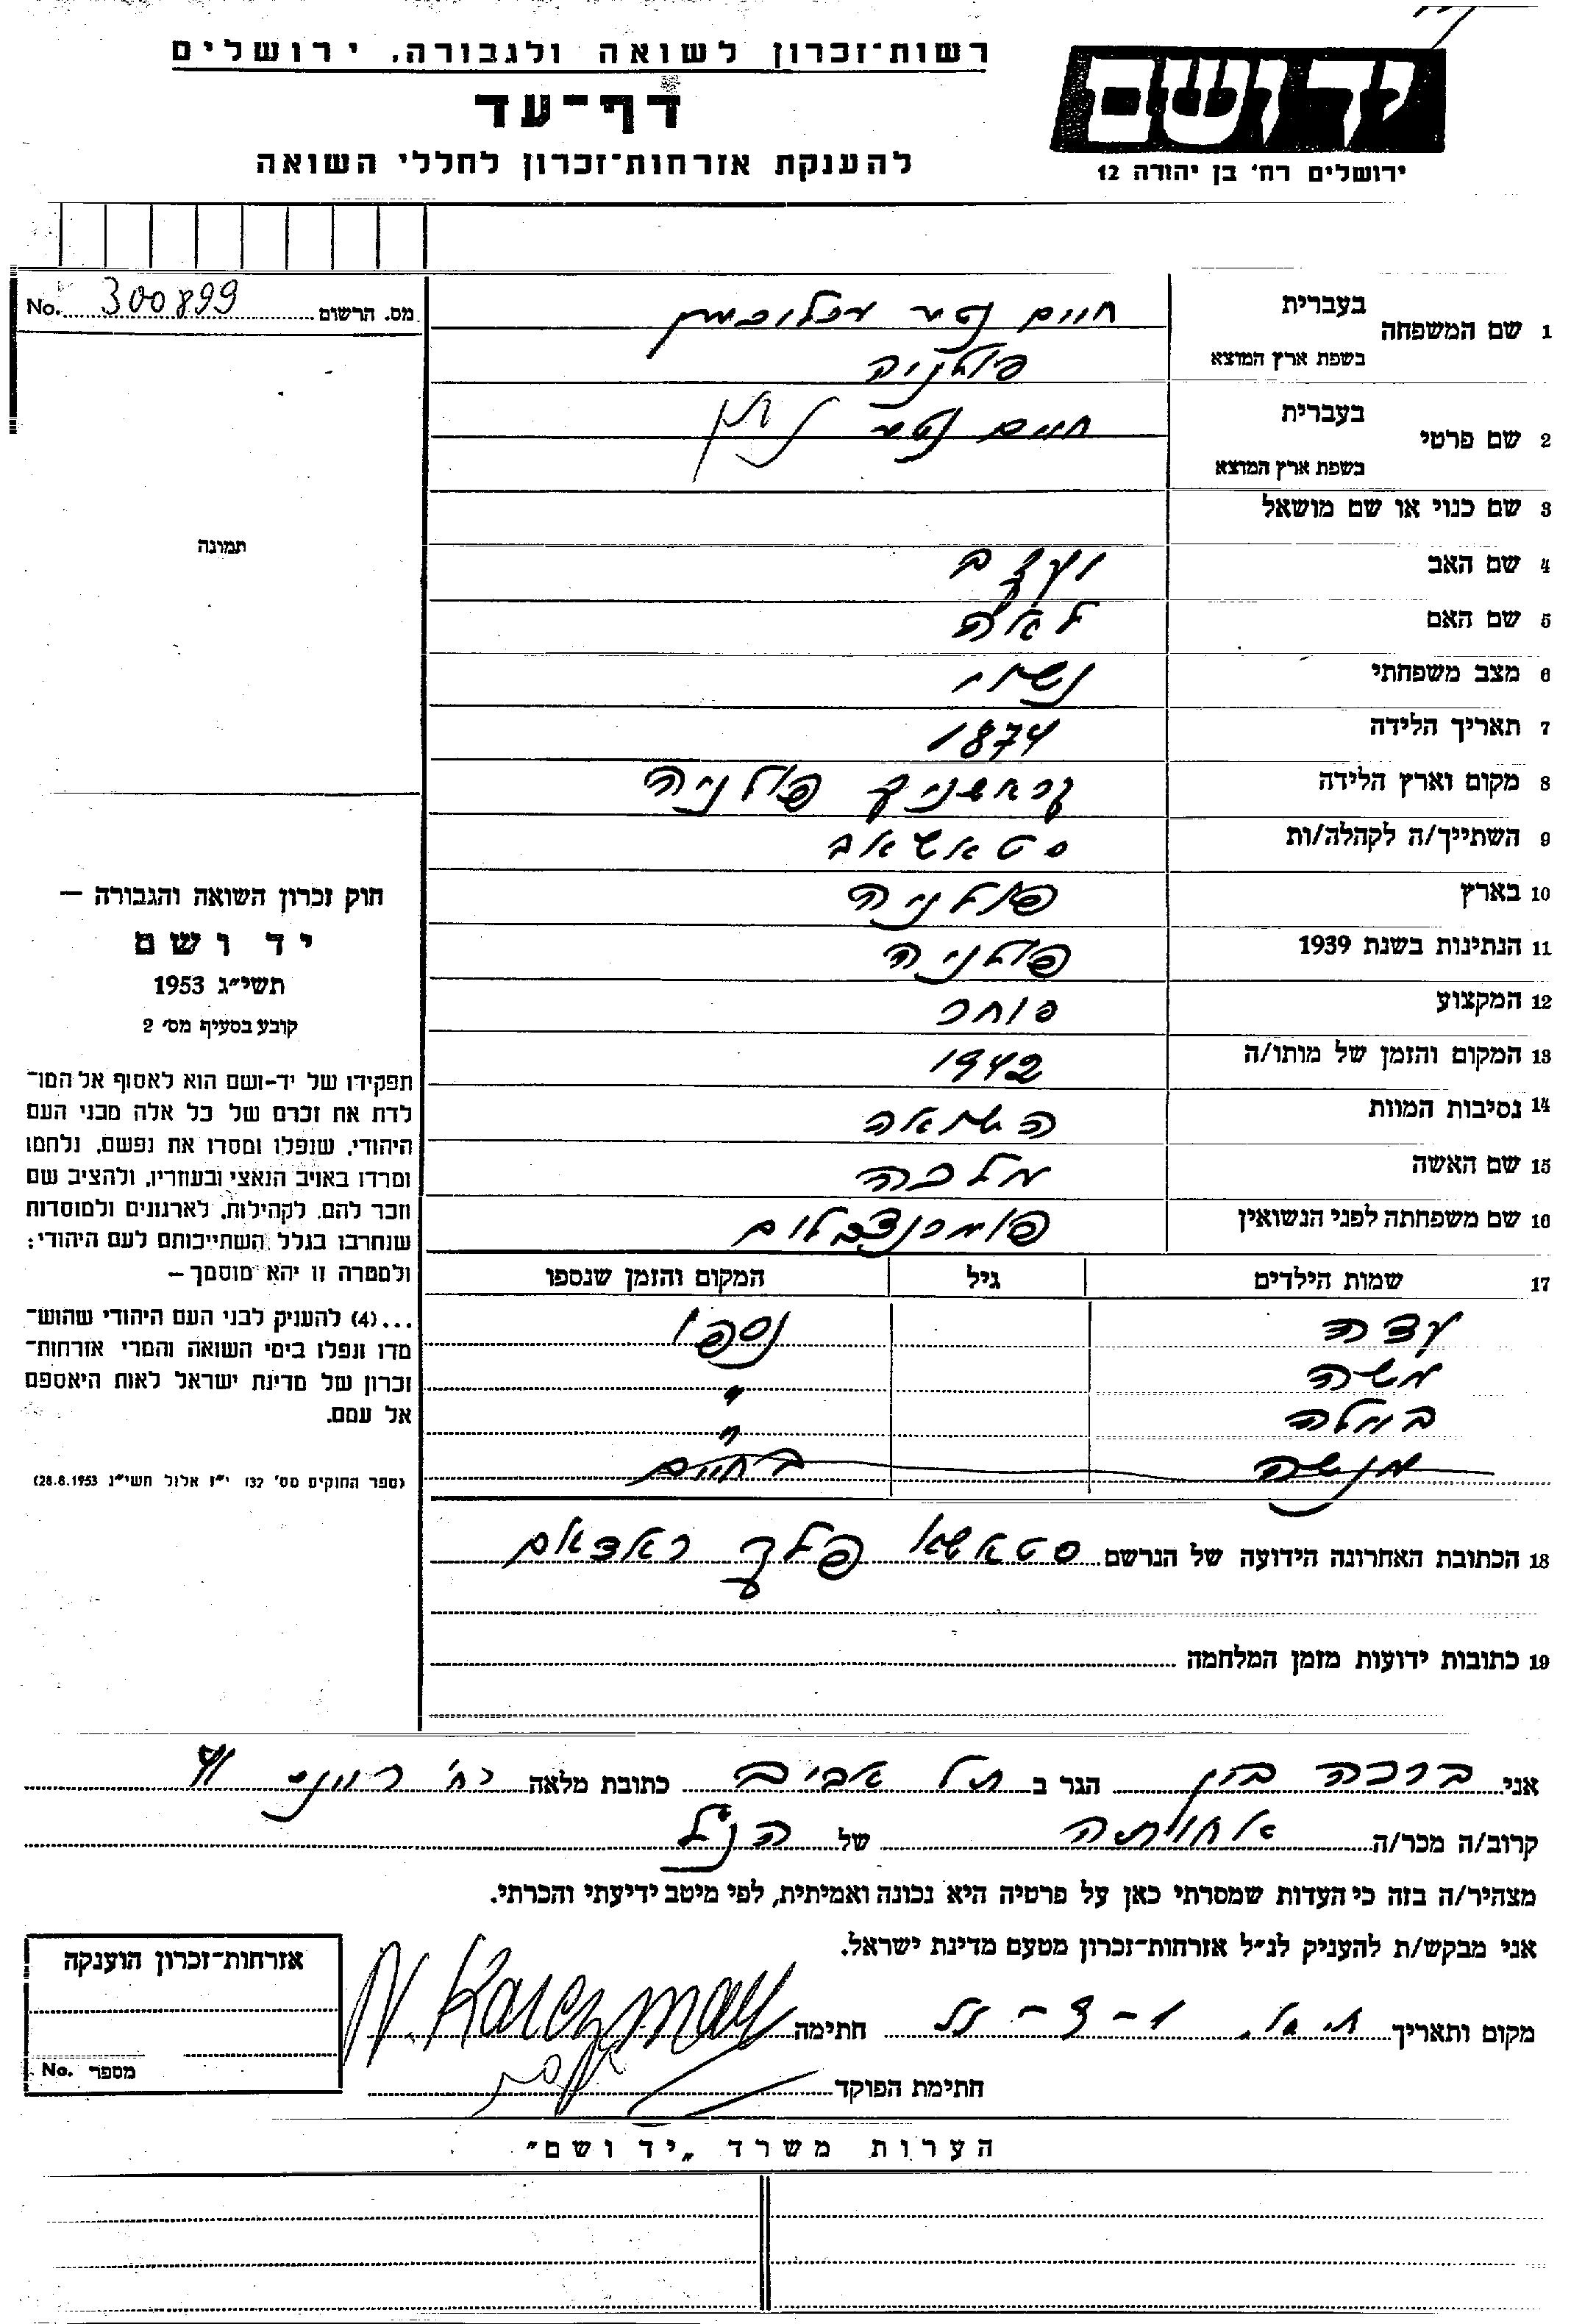 רשות־זכרון לשואה ולגבורה, ירושלים
דף־עד
להענקת אזרחות־זכרון לחללי השואה
יד ושם
ירושלים רח׳ בן יהודה 12
מס. הרשום 300899 No.
1 שם המשפחה בעברית חיים נטע
בשפת ארץ המוצא פולניה
2 שם פרטי בעברית חיים נטע נתן
בשפת ארץ המוצא
3 שם כנוי או שם מושאל
4 שם האב יעקב
5 שם האם לאה
6 מצב משפחתי נשוי
7 תאריך הלידה 1874
8 מקום וארץ הלידה קראשניק פולניה
9 השתייך/ה לקהלה/ות סטאשאב
10 בארץ פולניה
11 הנתינות בשנת 1939 פולניה
12 המקצוע סוחר
13 המקום והזמן של מותו/ה 1942
14 נסיבות המוות השואה
15 שם האשה מלכה
16 שם משפחתה לפני הנשואין
17 שמות הילדים גיל המקום והזמן שנספו
עדה נספו
משה "
ביילה "
מנשה בחיים
18 הכתובת האחרונה הידועה של הנרשם פלך ראדאם
19 כתובות ידועות מזמן המלחמה
תמונה
חוק זכרון השואה והגבורה –
יד ושם
תשי״ג 1953
קובע בסעיף מס׳ 2
תפקידו של יד-ושם הוא לאסוף אל המו־
לדת את זכרם של כל אלה מבני העם
היהודי, שנפלו ומסרו את נפשם, נלחמו
ומרדו באויב הנאצי ובעוזריו, ולהציב שם
וזכר להם, לקהילות, לארגונים ולמוסדות
שנחרבו בגלל השתייכותם לעם היהודי;
ולמטרה זו יהא מוסמך –
...(4) להעניק לבני העם היהודי שהוש־
מדו ונפלו בימי השואה והמרי אזרחות־
זכרון של מדינת ישראל לאות היאספם
אל עמם.
(ספר החוקים מס׳ 132 י״ז אלול תשי״ג 28.8.1953)
אני ברכה הגר ב תל אביב כתובת מלאה רח׳
קרוב/ה מכר/ה אחותה של הנ״ל
מצהיר/ה בזה כי העדות שמסרתי כאן על פרטיה היא נכונה ואמיתית, לפי מיטב ידיעתי והכרתי.
אני מבקש/ת להעניק לנ״ל אזרחות־זכרון מטעם מדינת ישראל.
מקום ותאריך חתימה
חתימת הפוקד
אזרחות־זכרון הוענקה
מספר No.
הערות משרד „יד ושם"